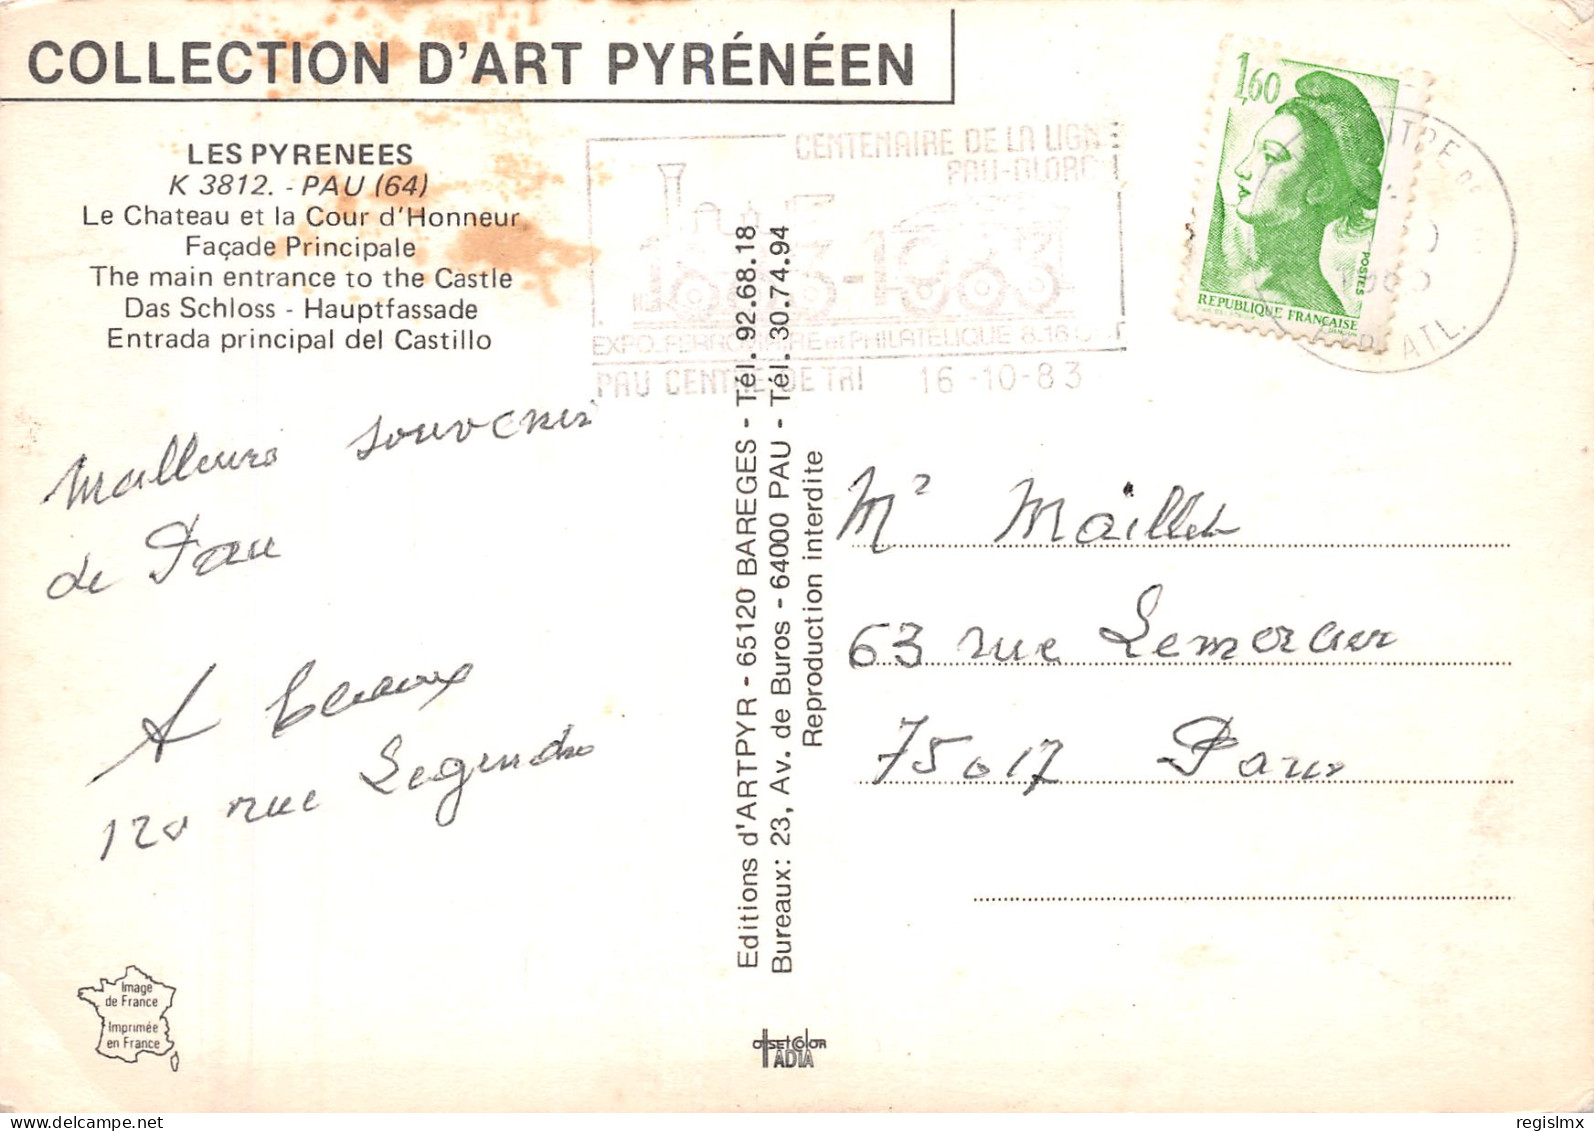 COLLECTION D'ART PYRÉNÉEN
LES PYRENEES
K 3812. - PAU (64)
Le Chateau et la Cour d'Honneur
Façade Principale
The main entrance to the Castle
Das Schloss - Hauptfassade
Entrada principal del Castillo
CENTENAIRE DE LA LIGNE
PAU-OLORON
1883-1983
EXPO. FERROVIAIRE et PHILATELIQUE 8.16
PAU CENTRE DE TRI 16-10-83
1,60
POSTES
REPUBLIQUE FRANÇAISE
ATL.
Meilleurs souvenirs
de Pau
A
120 rue Legendre
Editions d'ARTPYR - 65120 BAREGES - Tél. 92.68.18
Bureaux: 23, Av. de Buros - 64000 PAU - Tél. 30.74.94
Reproduction interdite
Mr Maillet
63 rue Lemercier
75017 Paris
Image
de France
Imprimée
en France
OFFSET COLOR
TADIA
delcampe.net
regislmx